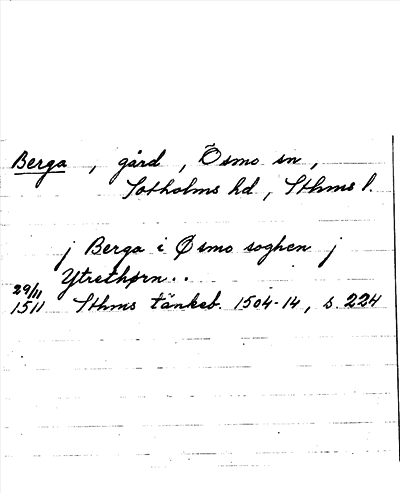 Berga, gård, Ösmo sn,
Sotholms hd, Sthms l.
j Berga i Øsmo soghen j
Ytrethørn..
29/11
1511 Sthms tänkeb. 1504-14, s. 224